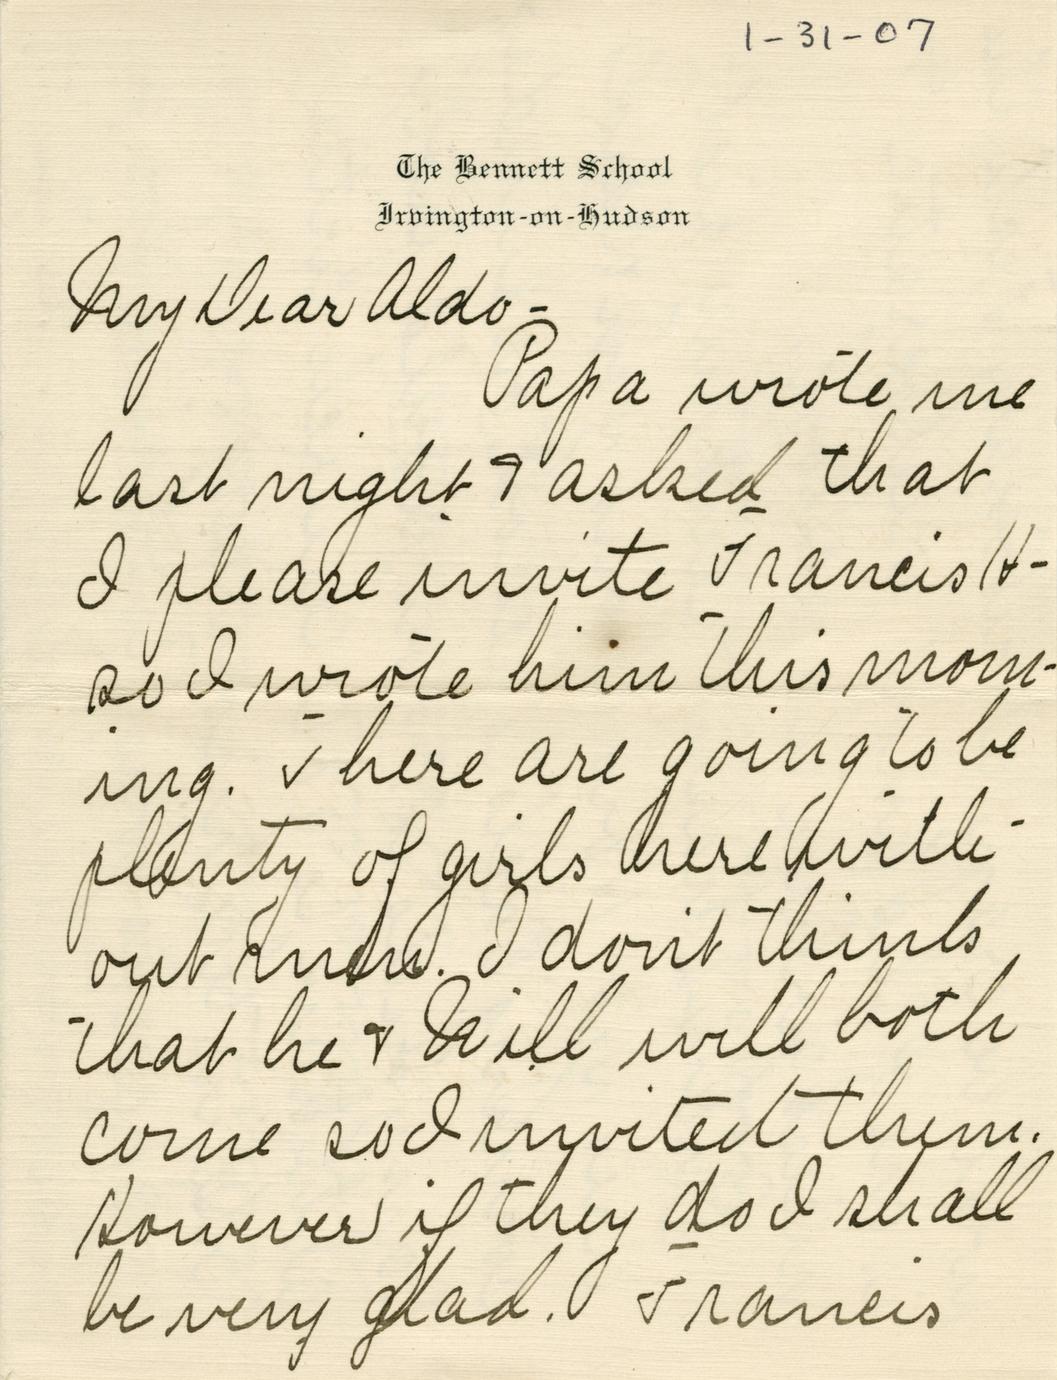 1-31-07
The Bennett School
Irvington-on-Hudson
My Dear Aldo-
Papa wrote me
last night & asked that
I please invite Francis H-
so I wrote him this morn-
ing. There are going to be
plenty of girls here with-
out men. I don't think
that he & Will will both
come so I invited them.
However if they do I shall
be very glad. Francis